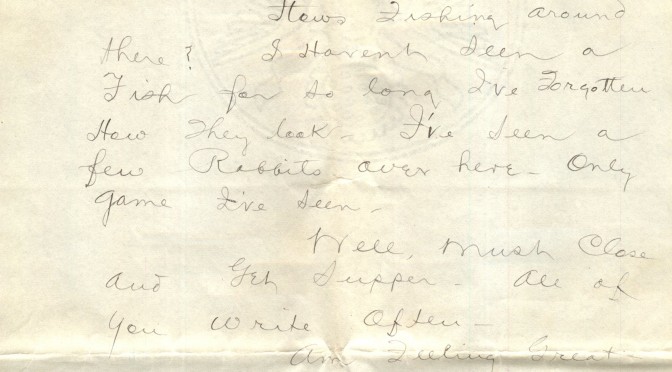 Hows Fishing around
there? I Havent seen a
Fish for so long I've Forgotten
How They look - I've seen a
few Rabbits over here - Only
game I've seen -
Well, Must Close
and Get Supper - All of
You Write Often -
Am Feeling Great -